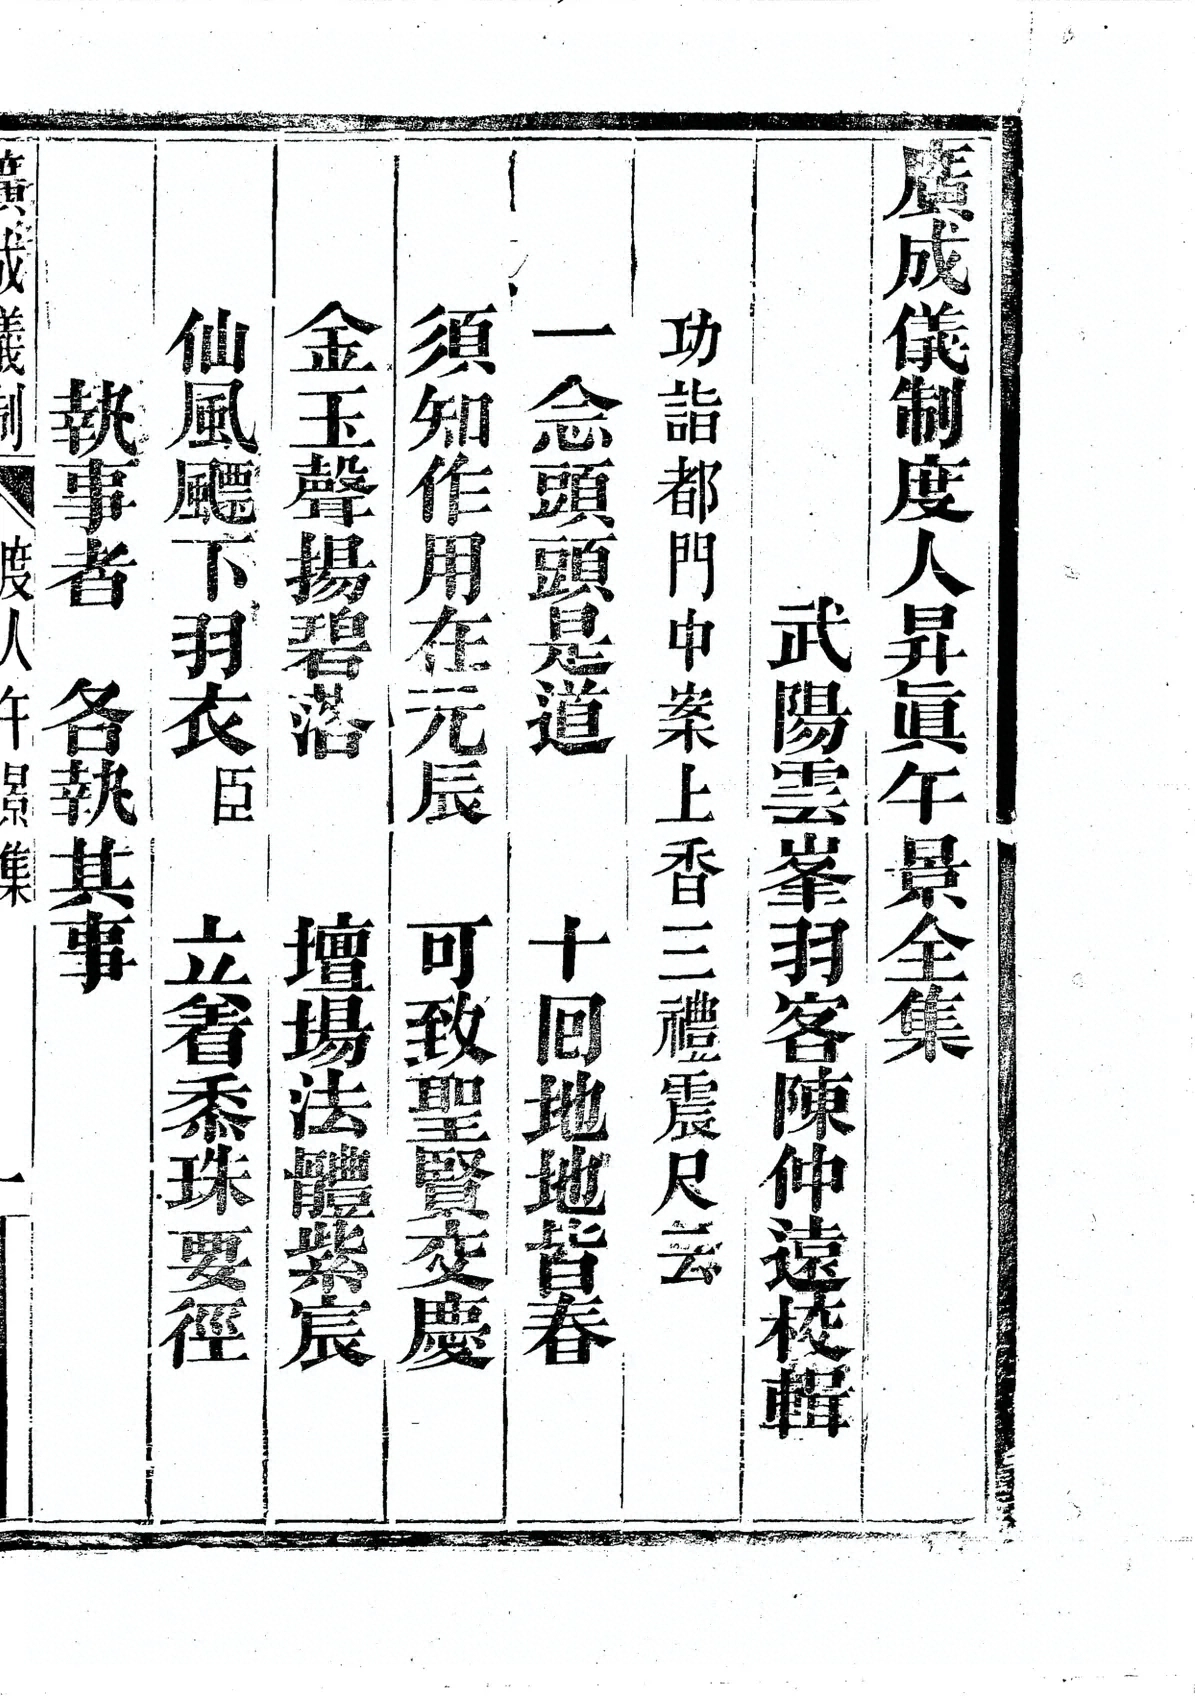 廣成儀制度人昇眞午景全集
武陽雲峯羽客陳仲遠校輯
功詣都門中案上香三禮震尺云
一念頭頭是道　十回地地皆春
須知作用在元辰　可致聖賢交慶
金玉聲揚碧落　壇場法體紫宸
仙風飃下羽衣臣　立着黍珠要徑
執事者　各執其事
廣成儀制　度人午景集　一